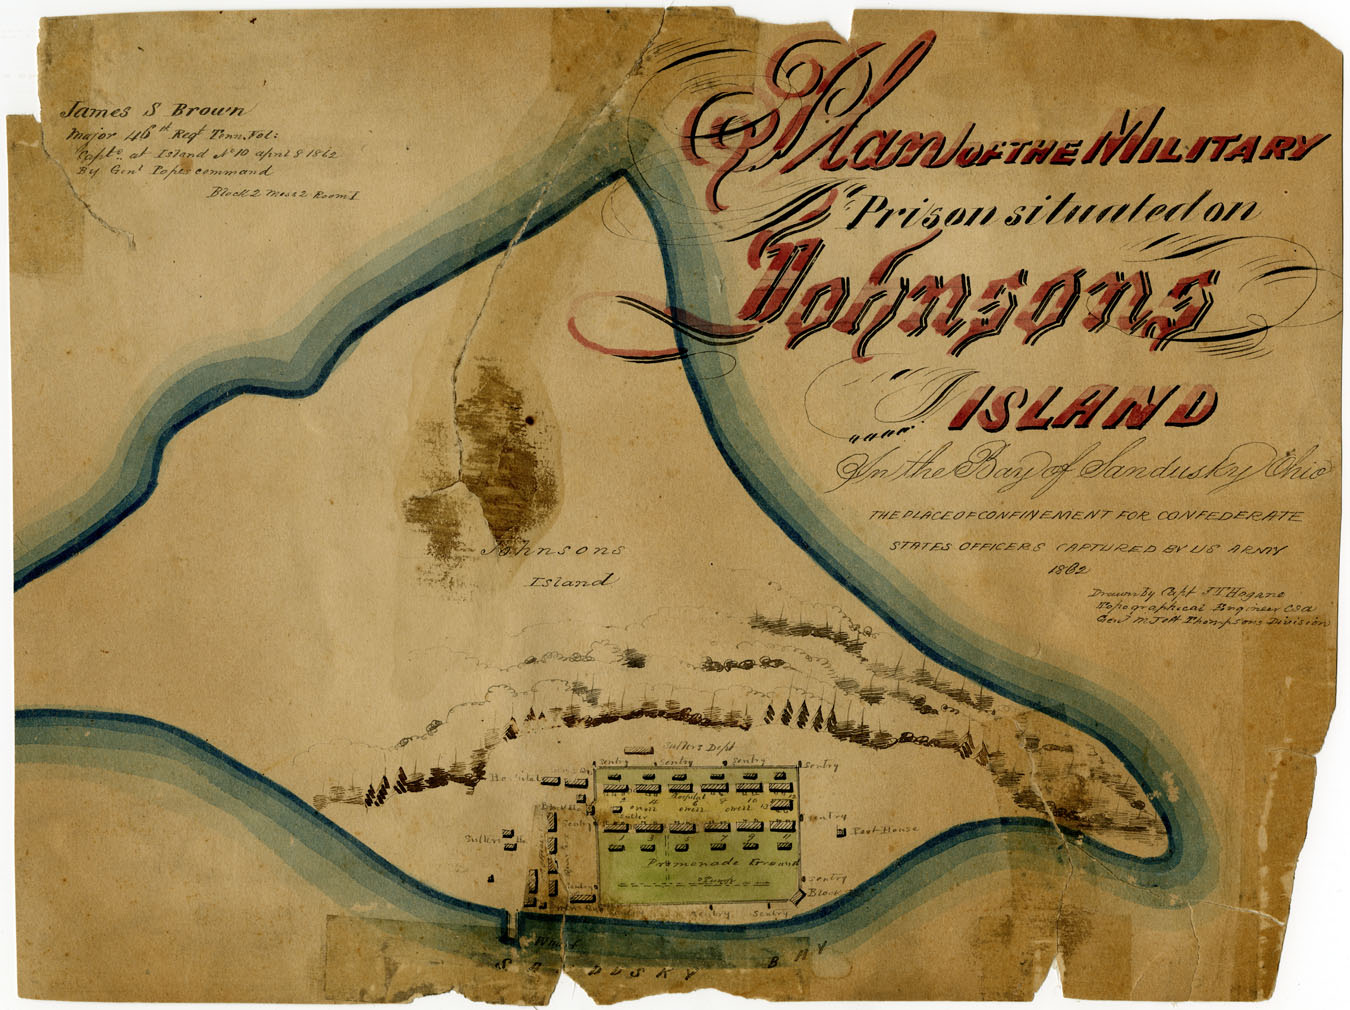 James S Brown
Major 46th Regt Tenn. Vol:
Captd. at Island No 10 april 8 1862
By Genl Popes command
Block 2 Mess 2 Room 1
Plan OF THE MILITARY
Prison situated on
Johnsons
ISLAND
In the Bay of Sandusky Ohio
THE PLACE OF CONFINEMENT FOR CONFEDERATE
STATES OFFICERS CAPTURED BY US ARMY
1862
Drawn By Capt J T Hogane
Topographical Engineer CSA
Genl M Jeff Thompsons Division
Johnsons
Island
Sutlers Dept
Sentry
Sentry
Sentry
Sentry
Hospital
Hospital
2 4 6 8 10 13
Sutler
Sentry
Sentry
Sutlers
Post House
1 3 5 7 9 11
Promenade Ground
Sentry
Sentry
Block
Sentry
Sentry
Wharf
SANDUSKY BAY